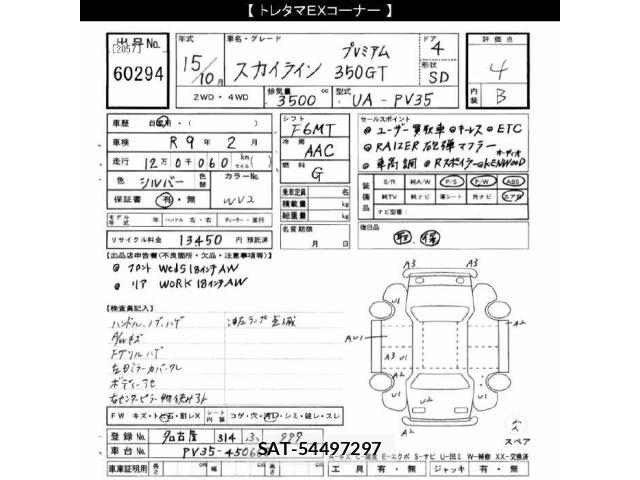 【 トレタマEXコーナー 】
出品No. [2057] 60294
年式 15/10月
車名・グレード スカイライン プレミアム 350GT
ドア 4
形状 SD
評価点 4
内装 B
2WD・4WD
排気量 3500 cc
型式 UA-PV35
車歴 自家用・( )
車検 R 9年 2月
走行 12万0千060 km(マイル)
色 シルバー 色替 カラーNo. WV2
保証書 有・無
モデル年式 年 ハンドル 左・右 ディーラー・並行
リサイクル料金 13450 円 預託済
シフト F6MT
冷房 AAC
燃料 G
乗車定員 名
積載量 kg
総重量 kg
名変期限 月 日
セールスポイント
◎ユーザー買取車 ◎キーレス ◎ETC
◎RAIZER 砲弾マフラー
◎車高調 ◎Rスポイラー ◎KENWOODオーディオ
装備品 S/R 純A/W P/S P/W ABS
純TV 純ナビ 革シート 外ナビ エアB
ナビ型番
後日品 取. 保
【出品店申告欄(不良箇所・欠品・注意事項等)】
◎ フロント Weds 18インチAW
◎ リア WORK 18インチAW
【検査員記入】
ハンドル、ノブ、ハゲ
A/wキズ
Fグリルハゲ
左ドアミラーカバークレ
FW キズ・トビ石・割レX シート内張 コゲ・穴・汚レ・シミ・破レ・スレ
登録No. 名古屋 314
車台No. PV35-4506
SAT-54497297
車庫証明用 長さ cm 幅 cm 高さ cm
A3
U1 U1
A2
AU1
A3 U1 U1
A2
U1 U2
A2
スペア
A-キズ C-腐食 E-エクボ S-サビ U-凹ミ W-補修 XX-交換済
工具 有・無 ジャッキ 有・無